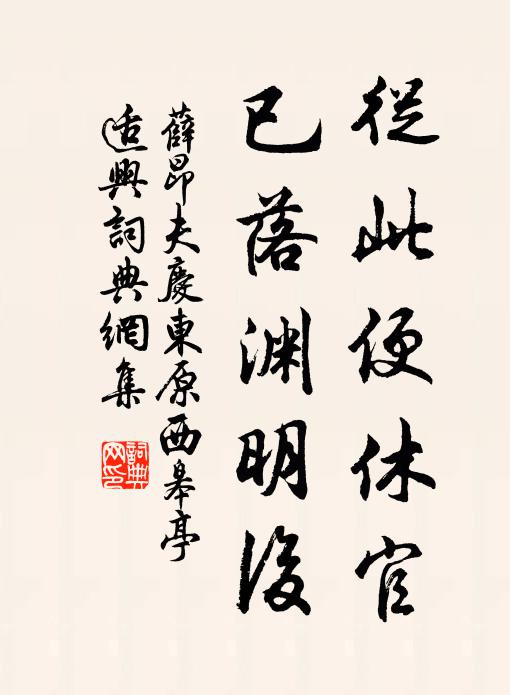 從此便休官
已落淵明後
薛昂夫慶東原西皋亭
适興詞典網集
詞典網印